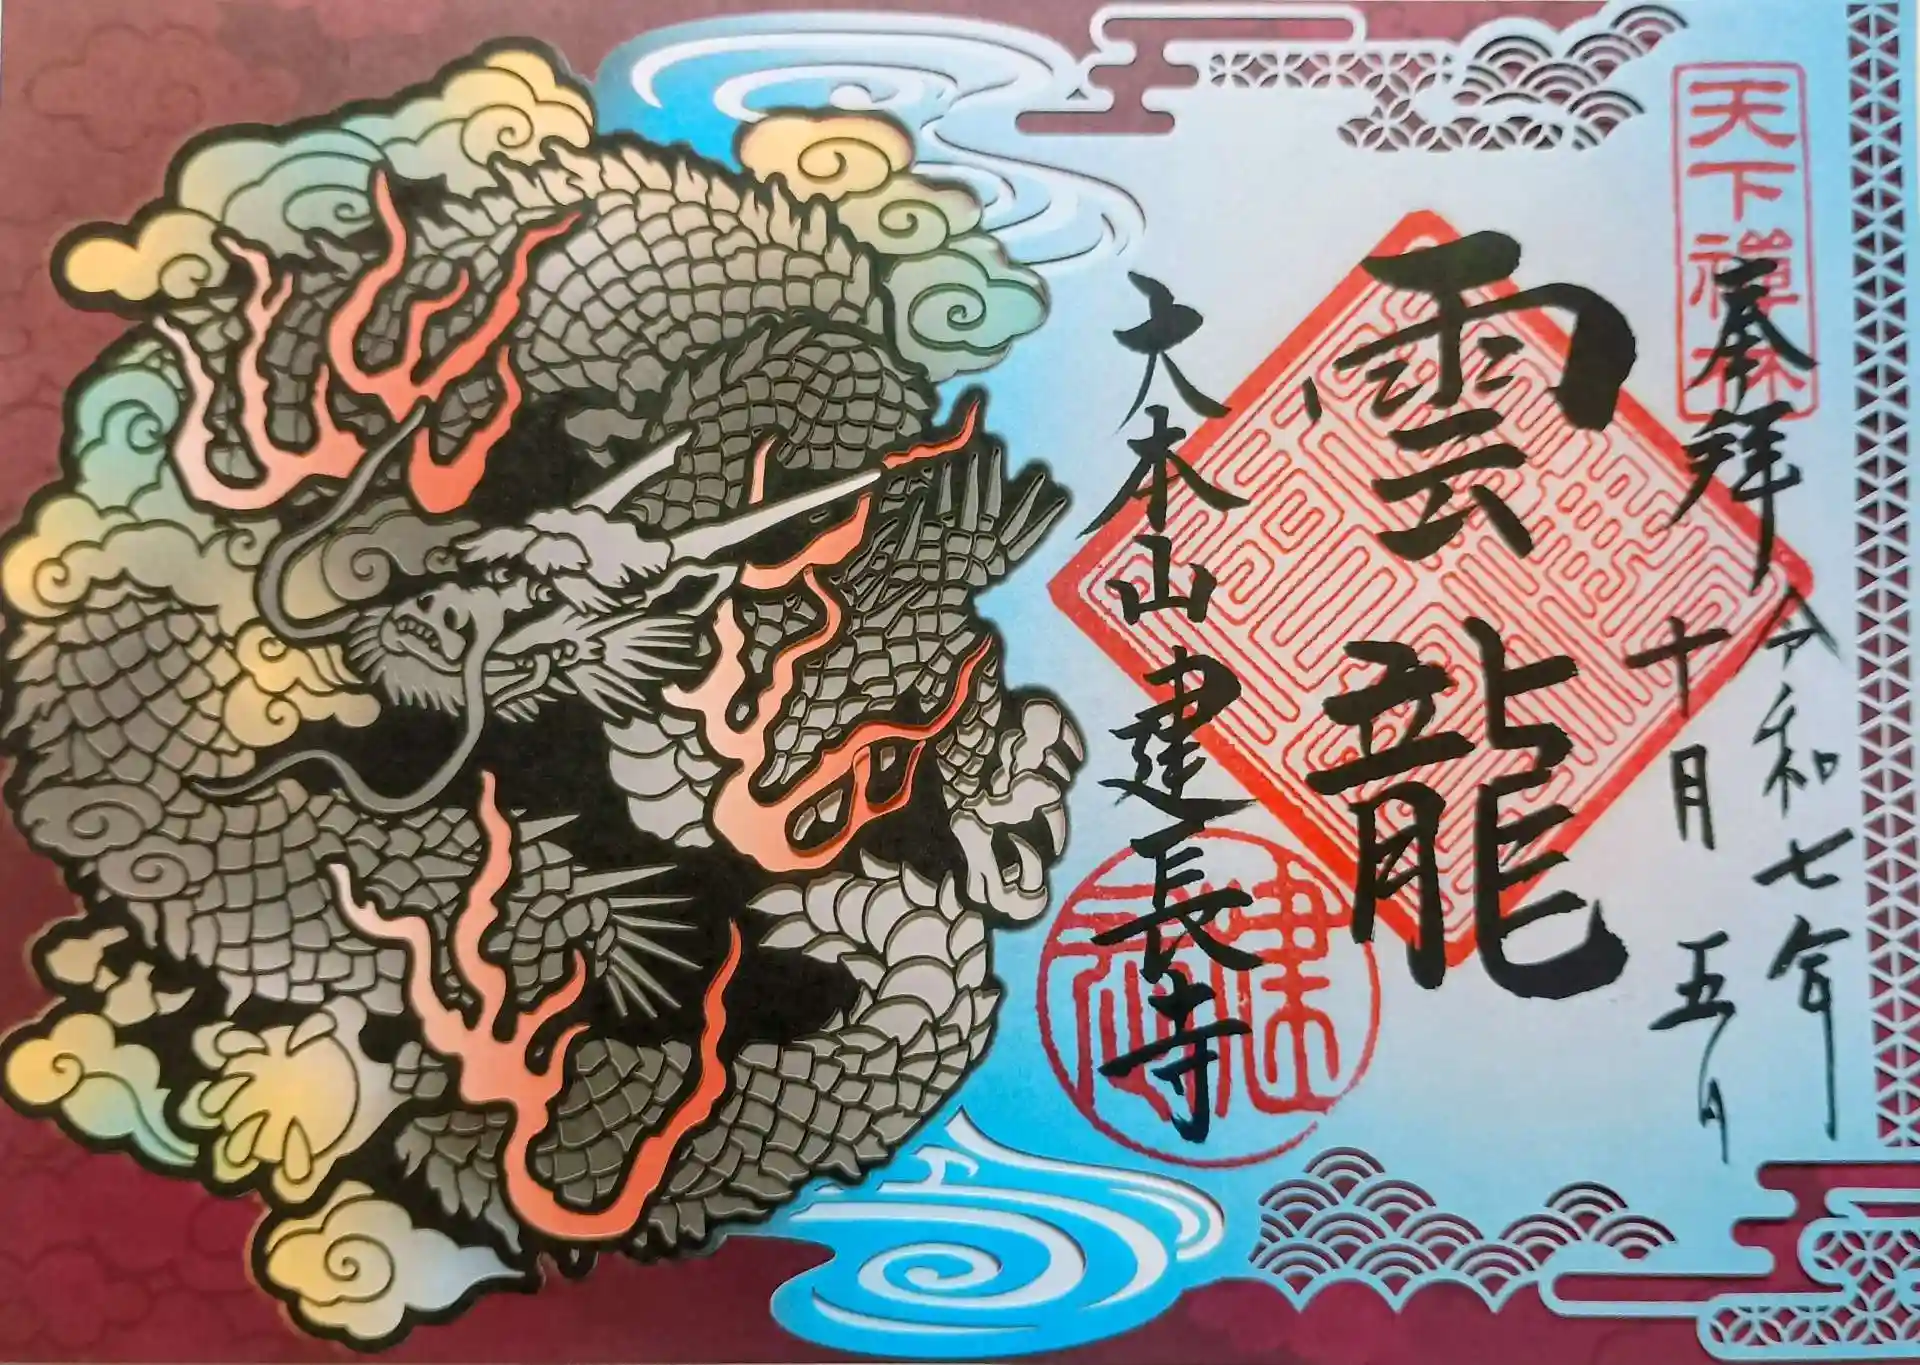 天下禅林
奉拝
令和七年
十月五日
雲龍
大本山建長寺